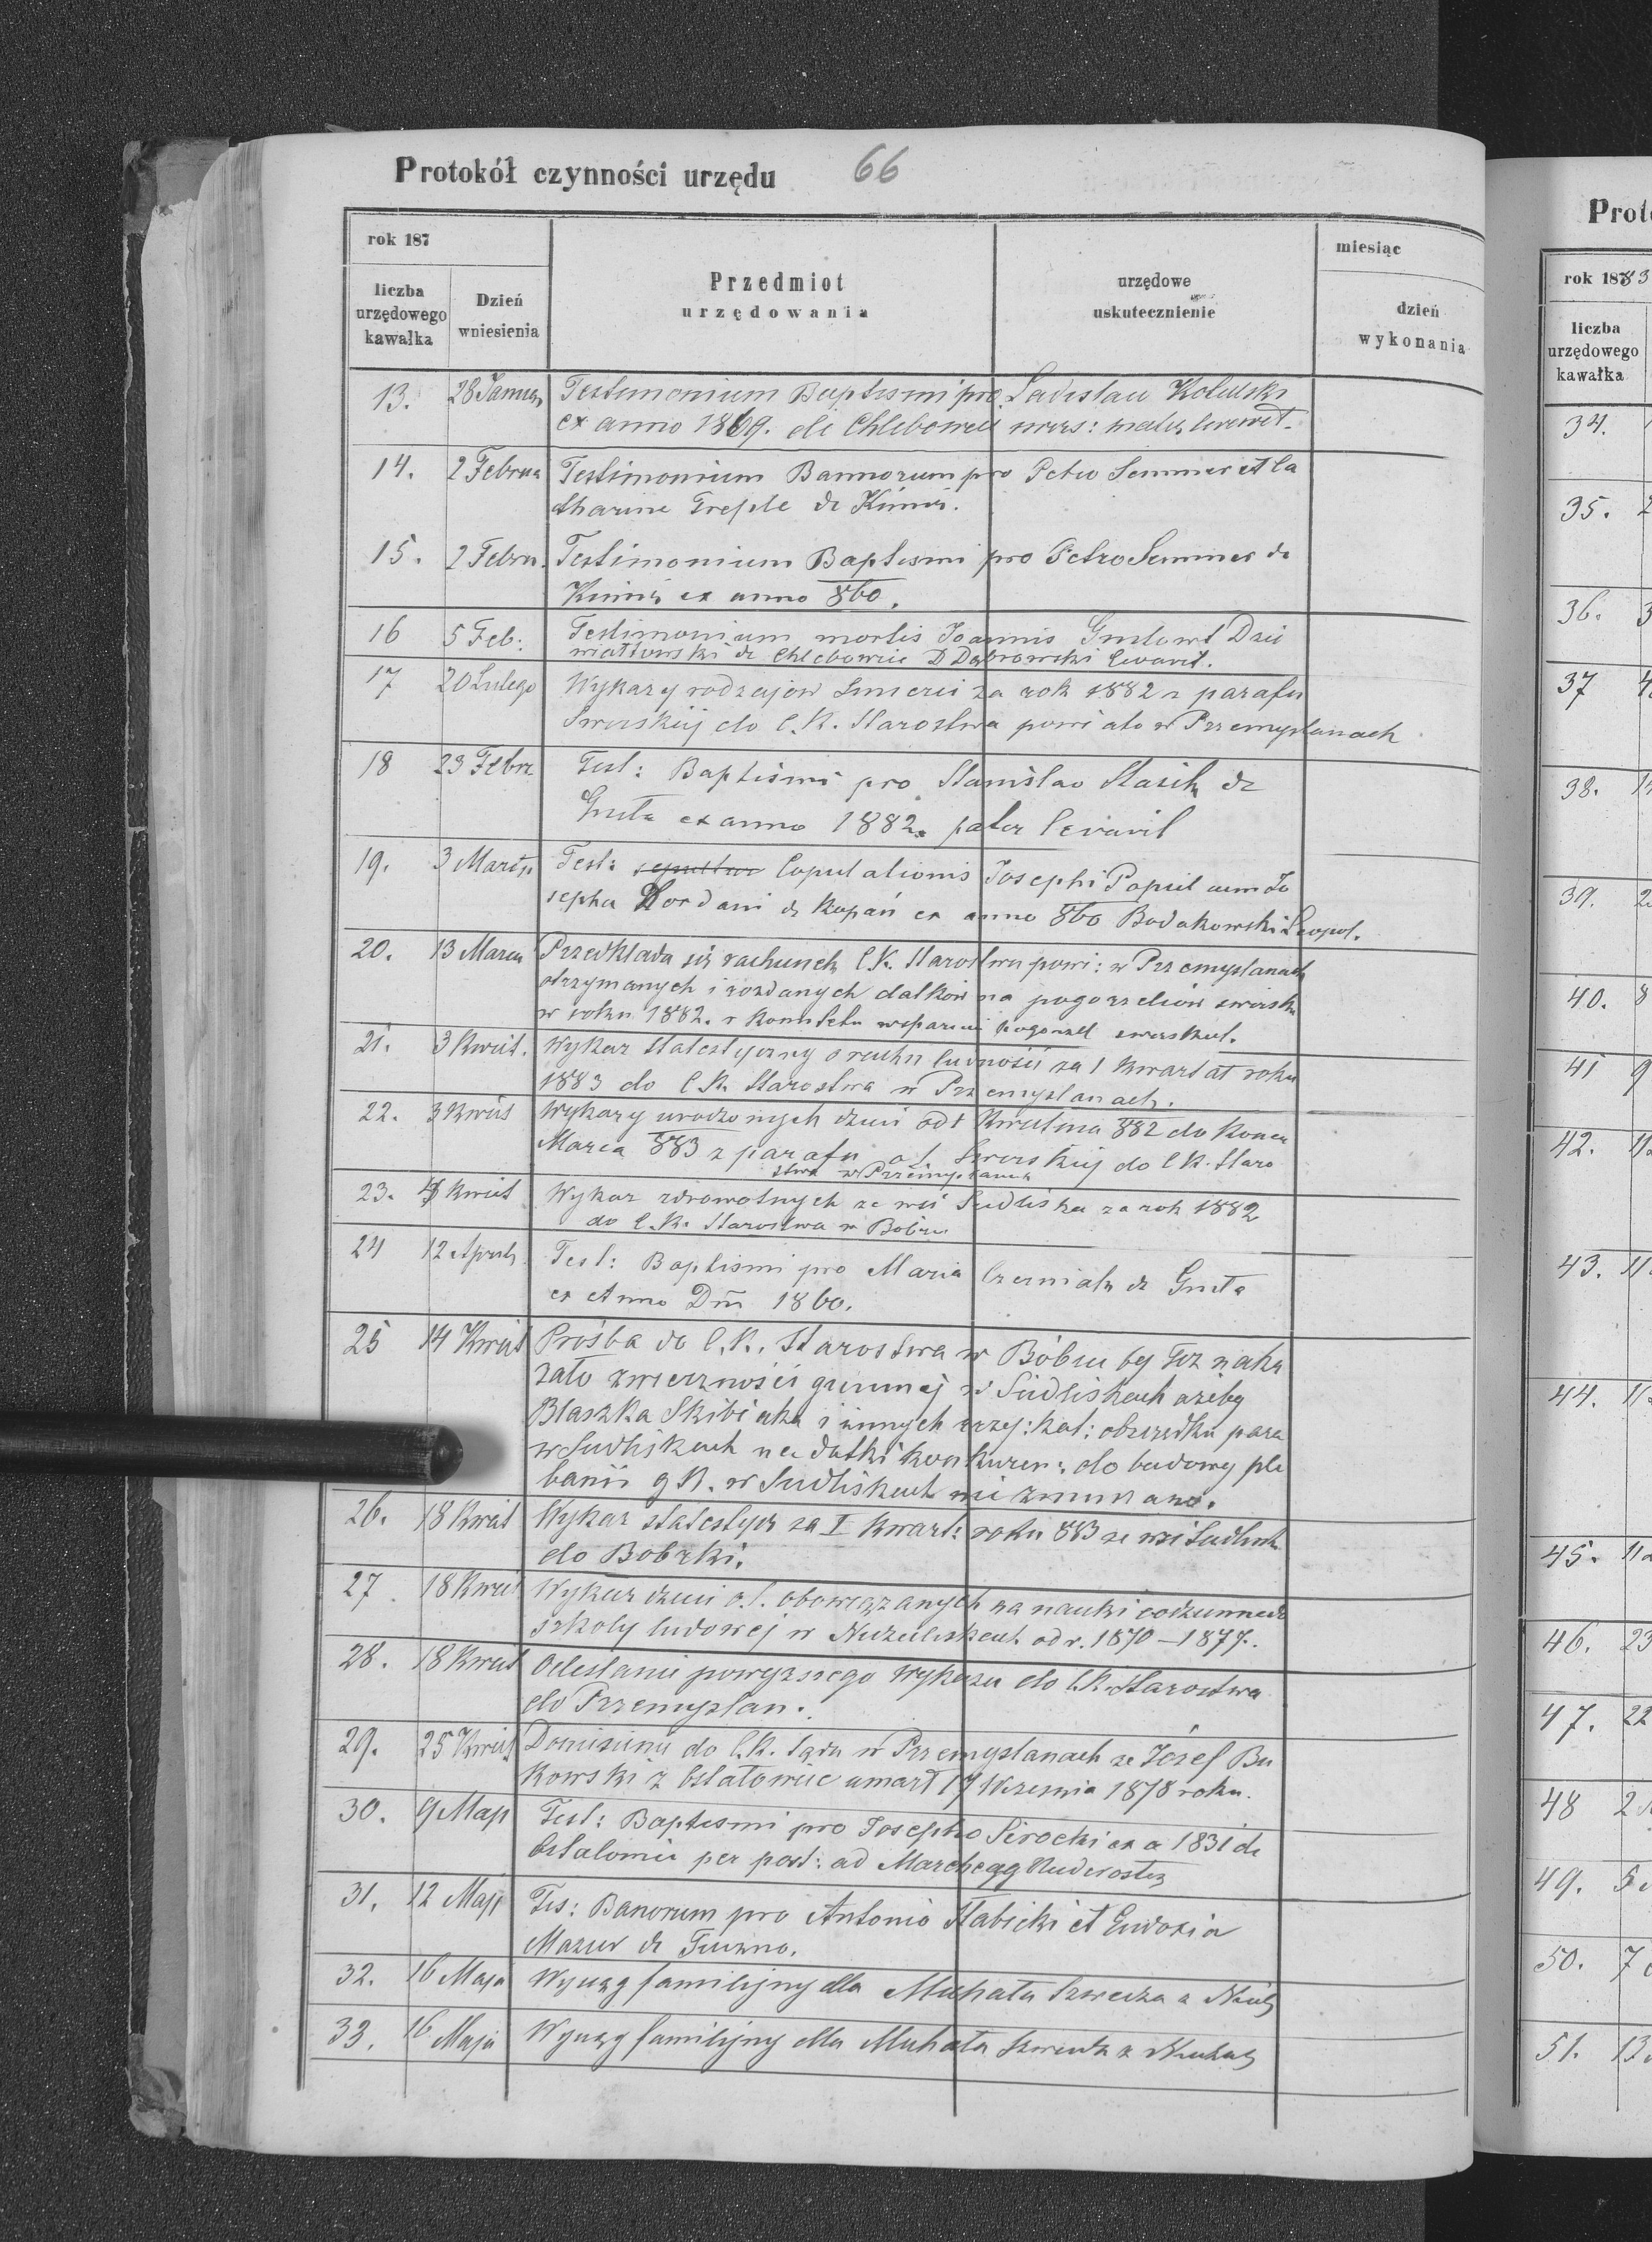 Protokół czynności urzędu 66
rok 187
miesiąc
liczba urzędowego kawałka
Dzień wniesienia
Przedmiot urzędowania
urzędowe uskutecznienie
dzień wykonania
13. 28 Januar Testimonium Baptismi pro Ladislau Kolulski
ex anno 1869. de Chlebowen mater levavit.
14. 2 Februa Testimonium Bannorum pro Petro Semmer et Ca
tharine Greple de Kimir.
15. 2 Febru. Testimonium Baptismi pro Petro Semmer de
Kimir ex anno 860.
16 5 Feb: Testimonium mortis Joannis Gniłowt Dzie
wiałtowski de Chlebowice D Dąbrowski levavit.
17 20 Lutego Wykazy rodzajów śmierci za rok 1882 z parafii
Swirskiej do C. K. Starostwa powiato w Przemyslanach
18 23 Febr. Test: Baptismi pro Stanislao Stasik de
Gniła ex anno 1882. pater levavit
19. 3 Martii Test: Copulationis Josephi Popiel cum Jo
sepha Kordani de Kopań ex anno 860 Bodakowski Leopol.
20. 13 Marca Przedkłada się rachunek C. K. Starostwu powi: w Przemyslanach
otrzymanych i rozdanych datków na pogorzelców swirsk
w roku 1882. z Komitetu wsparcia pogorzel swirskich.
21. 3 Kwiet. Wykaz statestyczny o ruchu ludności za I Kwartał roku
1883 do C. K. Starostwa w Przemyslanach.
22. 3 Kwiet Wykazy urodzonych dzieci od 1 Kwietnia 882 do Końca
Marca 883 z parafii o. ł. Swirskiej do C. K. Staro
stwa w Przemyslanach
23. 4 Kwiet Wykaz zdrowotnych ze wsi Siedliska za rok 1882
do C. K. Starostwa w Bóbrce
24 12 Aprilis Test: Baptismi pro Maria Czerniak de Gniła
ex Anno Dm̄ 1860.
25 14 Kwiet Prośba do C. K. Starostwa w Bóbrce by też naka
zało zwierzności gminnej w Siedliskach ażeby
Błaszka Skibicka i innych rzy: kat: obrzędku para
w Siedliskach na datki konkuren: do budowy ple
banii g. K. w Siedliskach nie zmuszano.
26. 18 Kwiet Wykaz statestycz za I Kwart: roku 883 ze wsi Siedlisk
do Bobrki.
27. 18 Kwiet Wykaz dzieci o. ł. obowiązanych na nauki codzienneda
szkoły ludowej w Niedzieliskach od r. 1870 – 1877.
28. 18 Kwiet Odesłanie powyższego Wykazu do C. K. Starostwa
do Przemyslan.
29. 25 Kwiet Doniesienie do C. K. Sądu w Przemyslanach ze Józef Bu
kowski z Ostałowiec umarł 17 Wrzesnia 1878 roku.
30. 9 Maji Test: Baptismi pro Josepho Sirocki ex a 1831 de
Ostalowice per post: ad Marchegg
31. 12 Maji Tes: Banorum pro Antonio Słabicki et Eudoxia
Mazur de Tuczno.
32. 16 Maja Wyciąg familijny dla Michała Szwedza z
33. 16 Maja Wyciąg familijny dla Michała
Prot
rok 1883
liczba urzędowego kawałka
34.
35. 2
36. 3
37 4
38. 1
39. 2
40. 8
41 9
42. 1
43. 11
44. 11
45. 11
46. 23
47. 22
48 2
49. 5
50. 7
51. 13